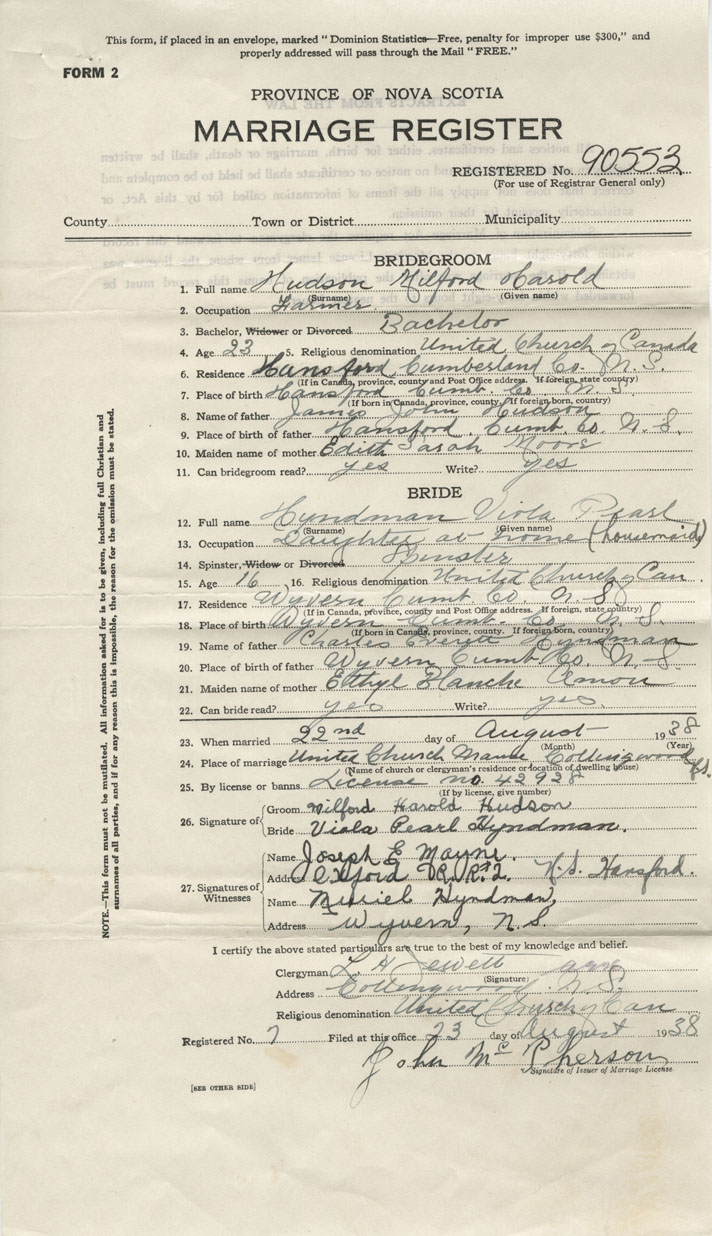 This form, if placed in an envelope, marked "Dominion Statistics—Free, penalty for improper use $300," and
properly addressed will pass through the Mail "FREE."
FORM 2
PROVINCE OF NOVA SCOTIA
MARRIAGE REGISTER
REGISTERED No. 90553
(For use of Registrar General only)
County Town or District Municipality
BRIDEGROOM
1. Full name Hudson Milford Harold
(Surname) (Given name)
2. Occupation Farmer
3. Bachelor, Widower or Divorced Bachelor
4. Age 23 5. Religious denomination United Church of Canada
6. Residence Hansford Cumberland Co. N.S.
(If in Canada, province, county and Post Office address. If foreign, state country)
7. Place of birth Hansford Cumb. Co. N.S.
(If born in Canada, province, county. If foreign born, country)
8. Name of father James John Hudson
9. Place of birth of father Hansford Cumb Co. N.S.
10. Maiden name of mother Edith Sarah Moore
11. Can bridegroom read? yes Write? yes
BRIDE
12. Full name Hyndman Viola Pearl
(Surname) (Given name)
13. Occupation Daughter at home (housemaid)
14. Spinster, Widow or Divorced Spinster
15. Age 16 16. Religious denomination United Church of Can.
17. Residence Wyvern Cumb Co. N.S.
(If in Canada, province, county and Post Office address. If foreign, state country)
18. Place of birth Wyvern Cumb. Co. N.S.
(If born in Canada, province, county. If foreign born, country)
19. Name of father Charles Hyndman
20. Place of birth of father Wyvern Cumb Co. N.S.
21. Maiden name of mother Ethyl Blanche Amon
22. Can bride read? yes Write? yes
23. When married 22nd day of August 1938
(Month) (Year)
24. Place of marriage United Church Manse Collingwood N.S.
(Name of church or clergyman's residence or location of dwelling house)
25. By license or banns License no. 42928
(If by license, give number)
26. Signature of Groom Milford Harold Hudson
Bride Viola Pearl Hyndman.
27. Signatures of Witnesses Name Joseph E Mayne.
Address Oxford R.R.#2. N.S. Hansford.
Name Muriel Hyndman,
Address Wyvern, N.S.
I certify the above stated particulars are true to the best of my knowledge and belief.
Clergyman L. H. Jewett
(Signature)
Address Collingwood N.S.
Religious denomination United Church of Can
Registered No. 7 Filed at this office 23 day of August 1938
John McPherson
Signature of Issuer of Marriage License
[SEE OTHER SIDE]
NOTE.—This form must not be mutilated. All information asked for is to be given, including full Christian and
surnames of all parties, and if for any reason this is impossible, the reason for the omission must be stated.